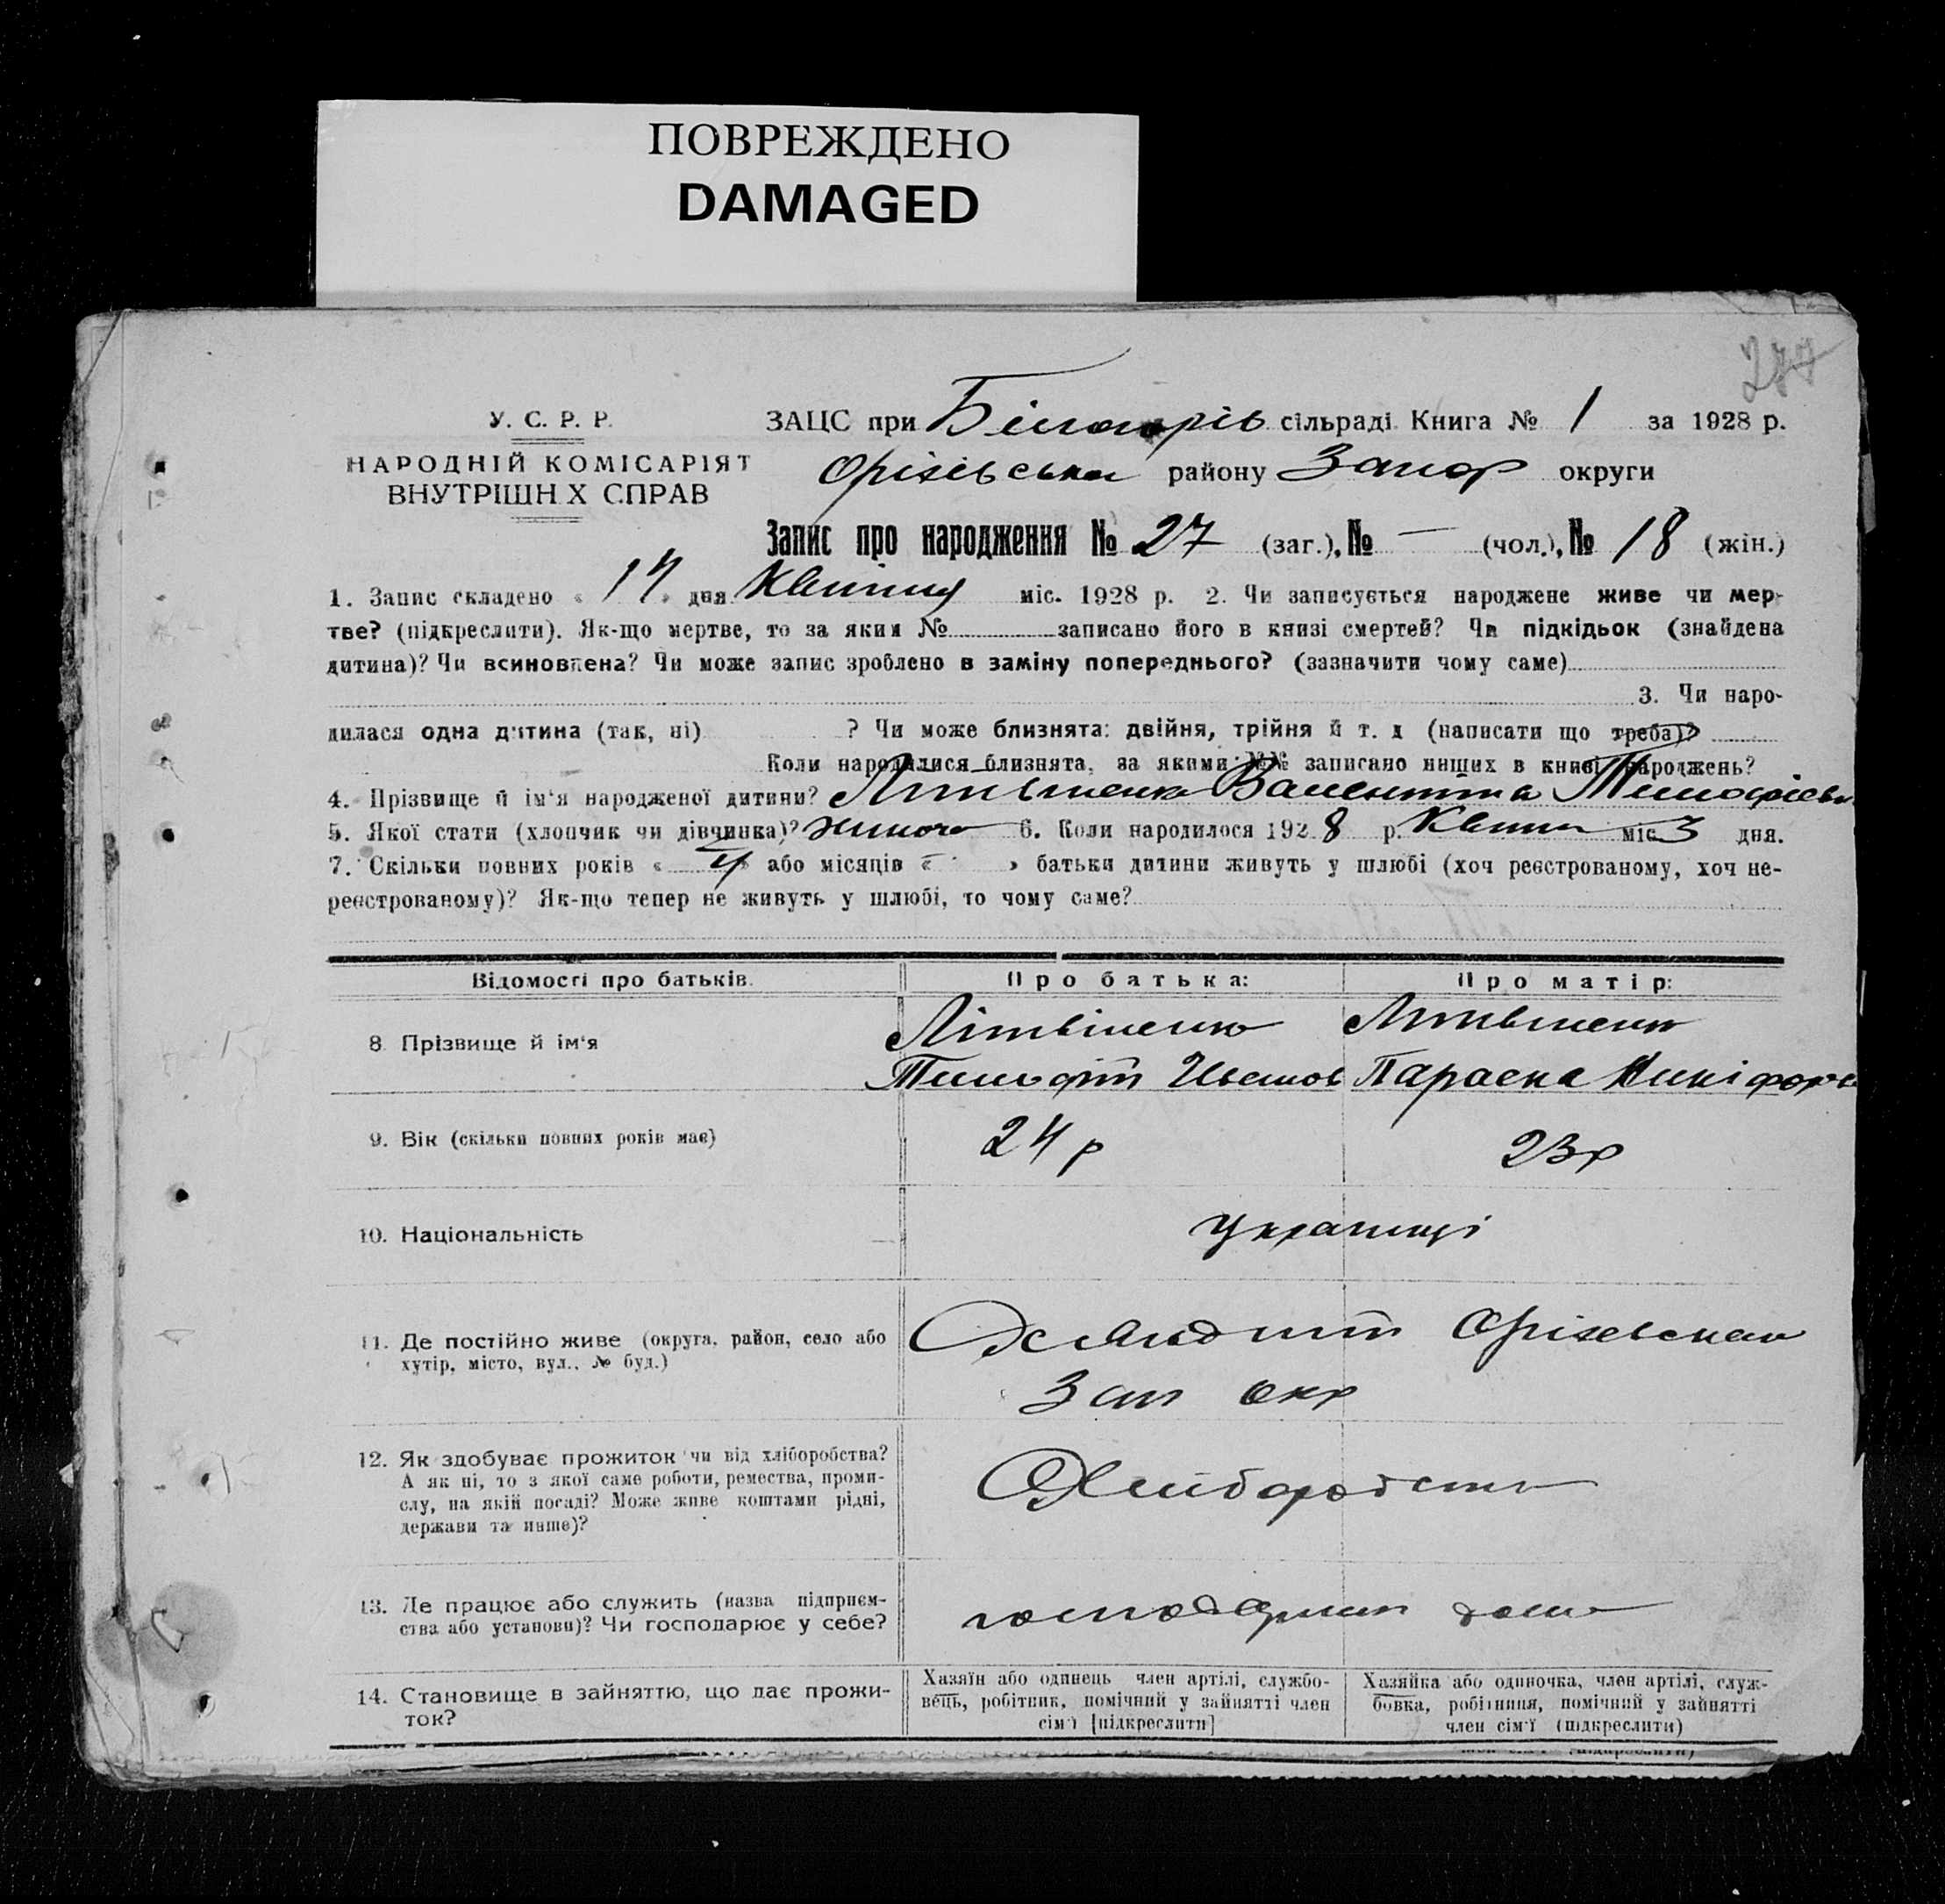 ПОВРЕЖДЕНО
DAMAGED
277
У. С. Р. Р.
НАРОДНІЙ КОМІСАРІЯТ
ВНУТРІШН Х СПРАВ
ЗАЦС при сільраді Книга № 1 за 1928 р.
Оріхівська району Запор округи
Запис про народження № 27 (заг.), № — (чол.), № 18 (жін.)
1. Запис складено « 17 » дня Квітня міс. 1928 р. 2. Чи записується народжене живе чи мер-
тве? (підкреслити). Як-що мертве, то за яким № записано його в книзі смертей? Чи підкідьок (знайдена
дитина)? Чи всиновлена? Чи може запис зроблено в заміну попереднього? (зазначити чому саме)
3. Чи наро-
дилася одна дитина (так, ні) ? Чи може близнята: двійня, трійня й т. д (написати що треба)?
Коли народилися близнята, за якими №№ записано инших в книзі народжень?
4. Прізвище й ім'я народженої дитини? Літвіненко Валентина Тимофієвн
5. Якої стати (хлопчик чи дівчинка)? жиноча 6. Коли народилося 1928 р. Квітн міс 3 дня.
7. Скільки повних років « » або місяців « » батьки дитини живуть у шлюбі (хоч реєстрованому, хоч не-
реєстрованому)? Як-що тепер не живуть у шлюбі, то чому саме?
Відомості про батьків.
Про батька:
Про матір:
8 Прізвище й ім'я
Літвіненко
Тимофій Іванов
Літвіненко
Параска Никіфоров
9. Вік (скільки повних років має)
24 р
23 р
10. Національність
Українці
11. Де постійно живе (округа, район, село або
хутір, місто, вул., № буд.)
Оріхівська
Зап окр
12. Як здобуває прожиток чи від хліборобства?
А як ні, то з якої саме роботи, ремества, проми-
слу, на якій посаді? Може живе коштами рідні,
держави та инше)?
Хліборобство
13. Де працює або служить (назва підприєм-
ства або установи)? Чи господарює у себе?
господарик дома
14. Становище в зайняттю, що дає прожи-
ток?
Хазяїн або одинець член артілі, службо-
вець, робітник, помічний у зайнятті член
сім'ї [підкреслити]
Хазяйка або одиночка, член артілі, служ-
бовка, робітниця, помічний у зайнятті
член сім'ї (підкреслити)